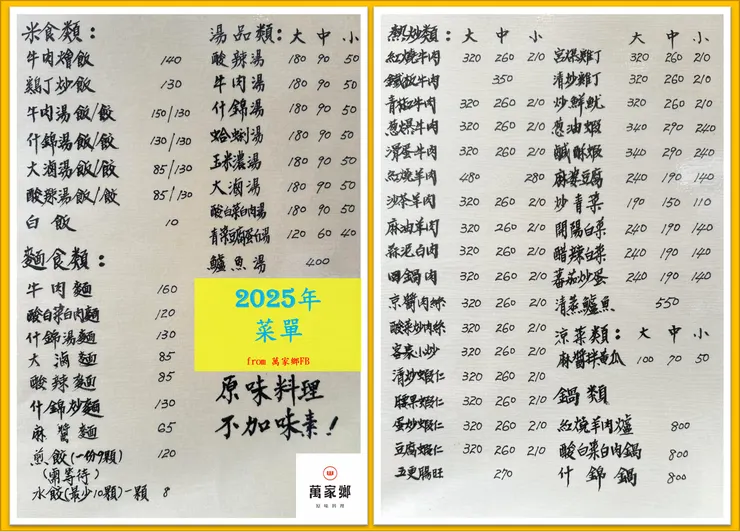 米食類：
牛肉燴飯 140
雞丁炒飯 130
牛肉湯飯/餃 150/130
什錦湯飯/餃 130/130
大滷湯飯/餃 85/130
酸辣湯飯/餃 85/130
白飯 10
麵食類：
牛肉麵 160
酸白菜白肉麵 120
什錦湯麵 130
大滷麵 85
酸辣麵 85
什錦炒麵 130
麻醬麵 65
煎餃(一份9顆) 120
(需等待)
水餃(最少10顆)一顆 8
湯品類：大 中 小
酸辣湯 180 90 50
牛肉湯 180 90 50
什錦湯 180 90 50
蛤蜊湯 180 90 50
玉米濃湯 180 90 50
大滷湯 180 90 50
酸白菜白肉湯 180 90 50
青菜豆腐蛋花湯 120 60 40
鱸魚湯 400
2025年
菜單
from 萬家鄉FB
原味料理
不加味素！
萬家鄉
原味料理
熱炒類：大 中 小
紅燒牛肉 320 260 210
鐵板牛肉 350
青椒牛肉 320 260 210
蔥爆牛肉 320 260 210
滑蛋牛肉 320 260 210
紅燒羊肉 480 280
沙茶羊肉 320 260 210
麻油羊肉 320 260 210
蒜泥白肉 320 260 210
回鍋肉 320 260 210
京醬肉絲 320 260 210
酸菜炒肉絲 320 260 210
客家小炒 320 260 210
清炒蝦仁 320 260 210
腰果蝦仁 320 260 210
蛋炒蝦仁 320 260 210
豆腐蝦仁 320 260 210
五更腸旺 270
大 中 小
宮保雞丁 320 260 210
清炒雞丁 320 260 210
炒鮮魷 320 260 210
蔥油蝦 340 290 240
鹹酥蝦 340 290 240
麻婆豆腐 240 190 140
炒青菜 190 150 110
開陽白菜 240 190 140
醋辣白菜 240 190 140
蕃茄炒蛋 240 190 140
清蒸鱸魚 550
涼菜類：大 中 小
麻醬拌黃瓜 100 70 50
鍋類
紅燒羊肉爐 800
酸白菜白肉鍋 800
什錦鍋 800